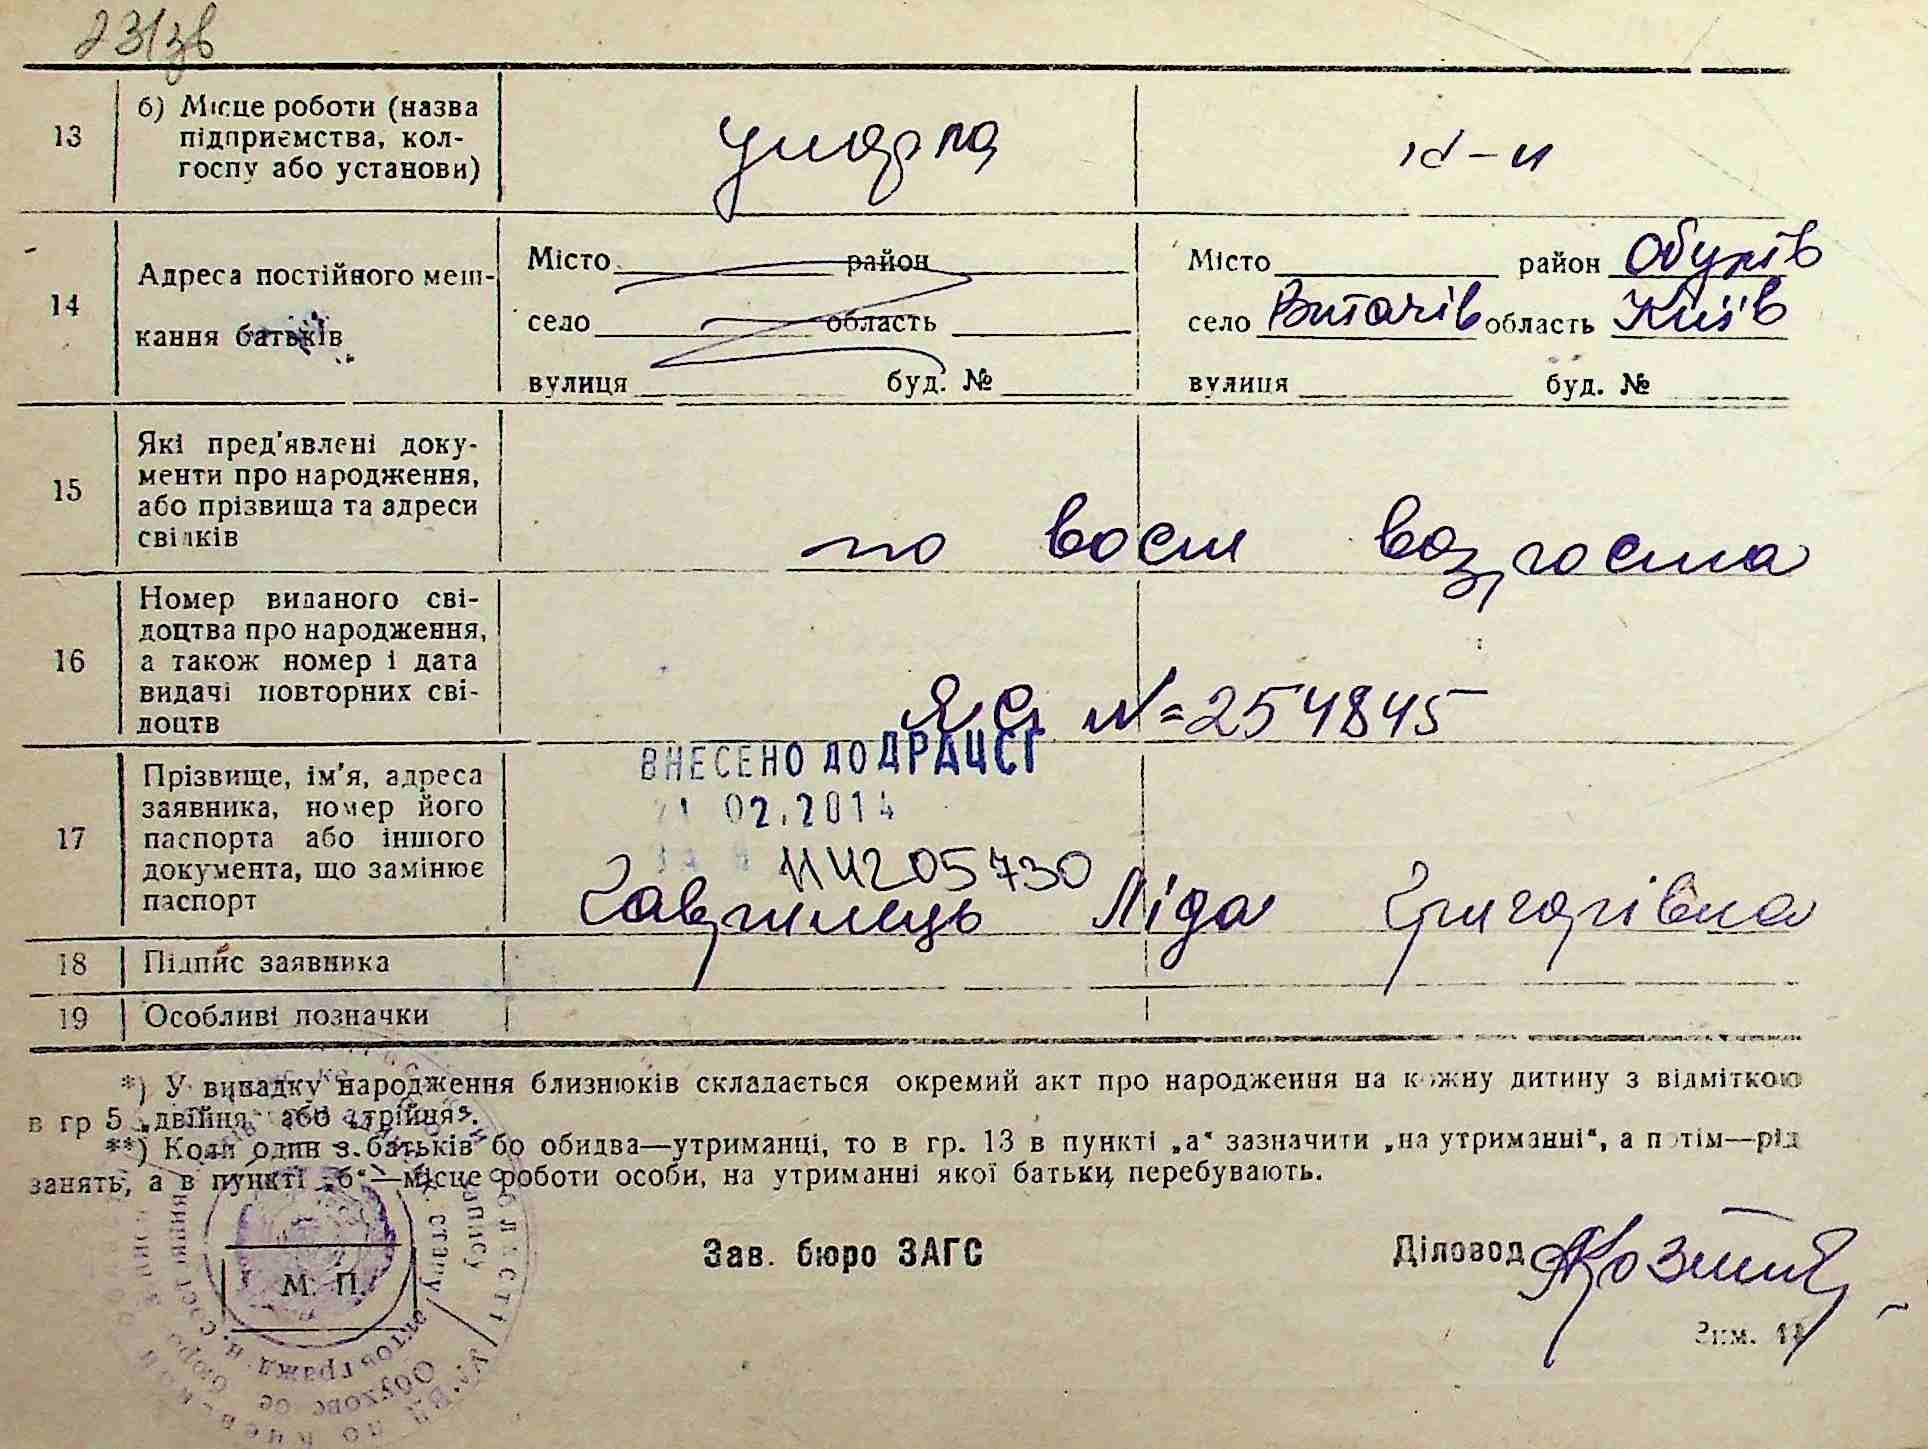 231зв
13
б) Місце роботи (назва
підприємства, кол-
госпу або установи)
умерла
к-п
14
Адреса постійного меш-
кання батьків
Місто район
село область
вулиця буд. №
Місто район Обухів
село Витачів область Київ
вулиця буд. №
15
Які пред'явлені доку-
менти про народження,
або прізвища та адреси
свідків
по восст возроста
16
Номер виданого сві-
доцтва про народження,
а також номер і дата
видачі повторних сві-
доцтв
ЯЄ №=254845
17
Прізвище, ім'я, адреса
заявника, номер його
паспорта або іншого
документа, що замінює
паспорт
ВНЕСЕНО ДО ДРАЦСГ
21 02.2014
Гаврилець Ліда Григорівна
18
Підпис заявника
19
Особливі позначки
*) У випадку народження близнюків складається окремий акт про народження на кожну дитину з відміткою
в гр 5 „двійня“ або „трійня“.
**) Коли один з батьків бо обидва—утриманці, то в гр. 13 в пункті „а“ зазначити „на утриманні“, а потім—рід
занять, а в пункті „б“—місце роботи особи, на утриманні якої батьки перебувають.
М. П.
Зав. бюро ЗАГС
Діловод